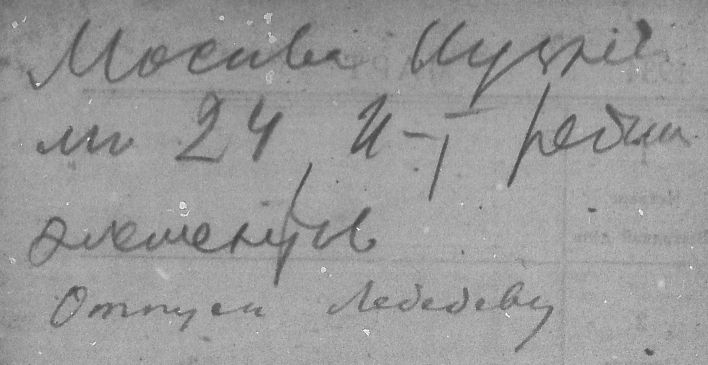 Москва Кузне
ми 24 И-т редких
элементов
Отпуск Лебедеву